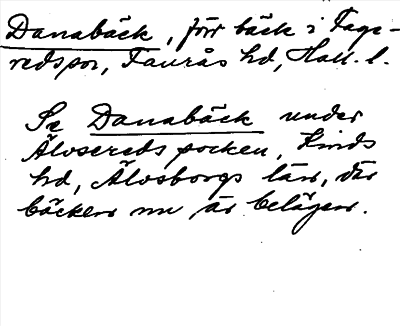 Danabäck, förr bäck i Fage-
redspn, Faurås hd, Hall. l.
Se Danabäck under
Älvsereds socken, Kinds
hd, Älvsborgs län, där
bäcken nu är belägen.